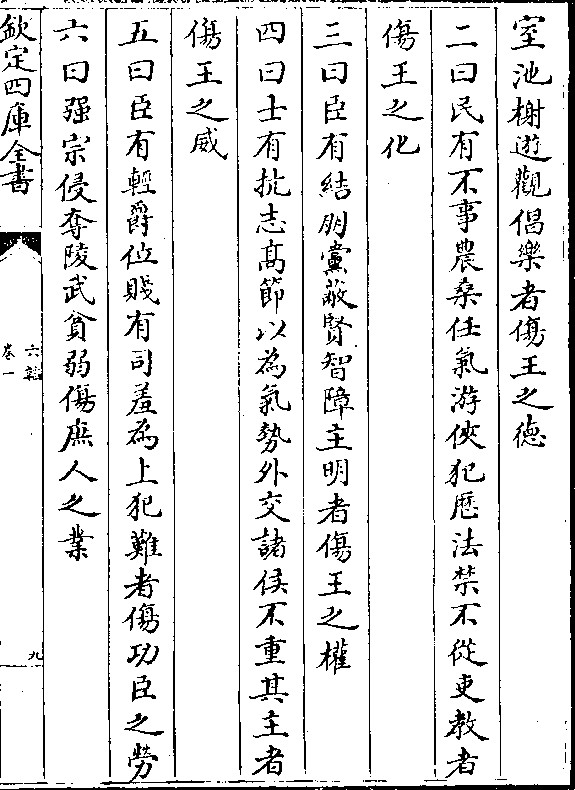 室池榭遊觀倡樂者傷王之德
二曰民有不事農桑任氣游俠犯歴法禁不從吏教者
傷王之化
三曰臣有結朋黨蔽賢智障主明者傷王之權
四曰士有抗志髙節以為氣勢外交諸侯不重其主者
傷王之威
五曰臣有輕爵位賤有司羞為上犯難者傷功臣之勞
六曰强宗侵奪陵武貧弱傷庶人之業
欽定四庫全書
六韜
卷一
九